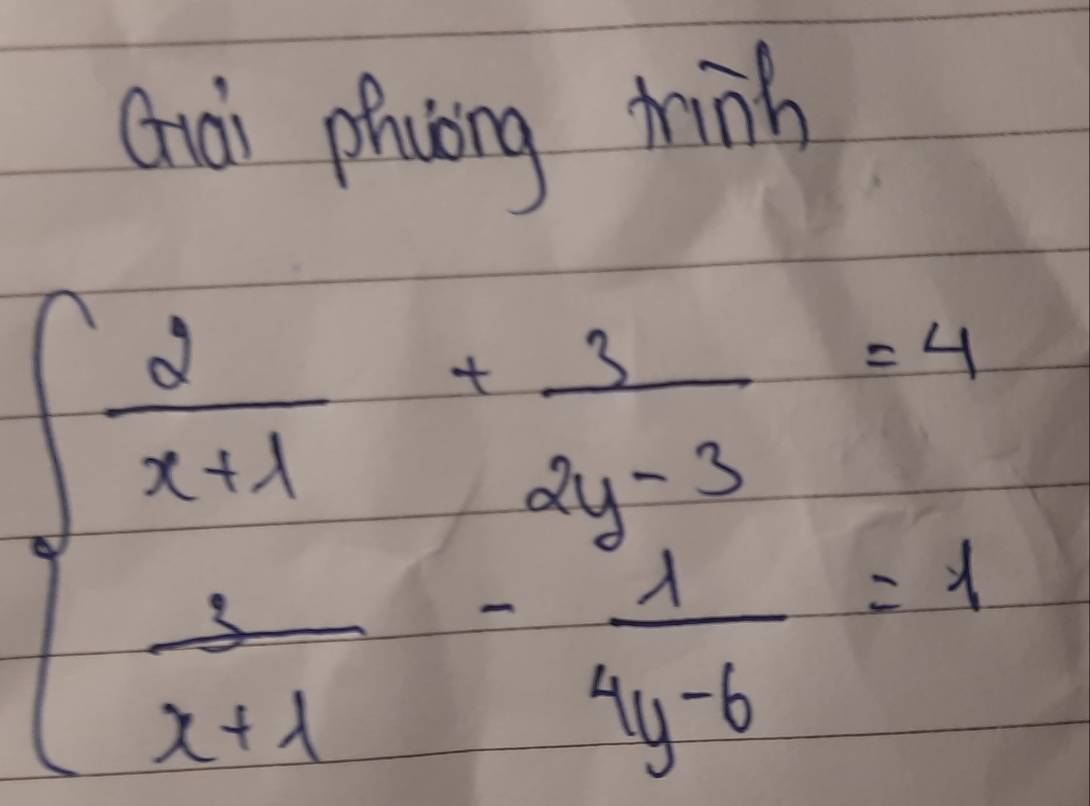 Giải phương trình
2/(x+1) + 3/(2y-3) = 4
3/(x+1) - 1/(4y-6) = 1